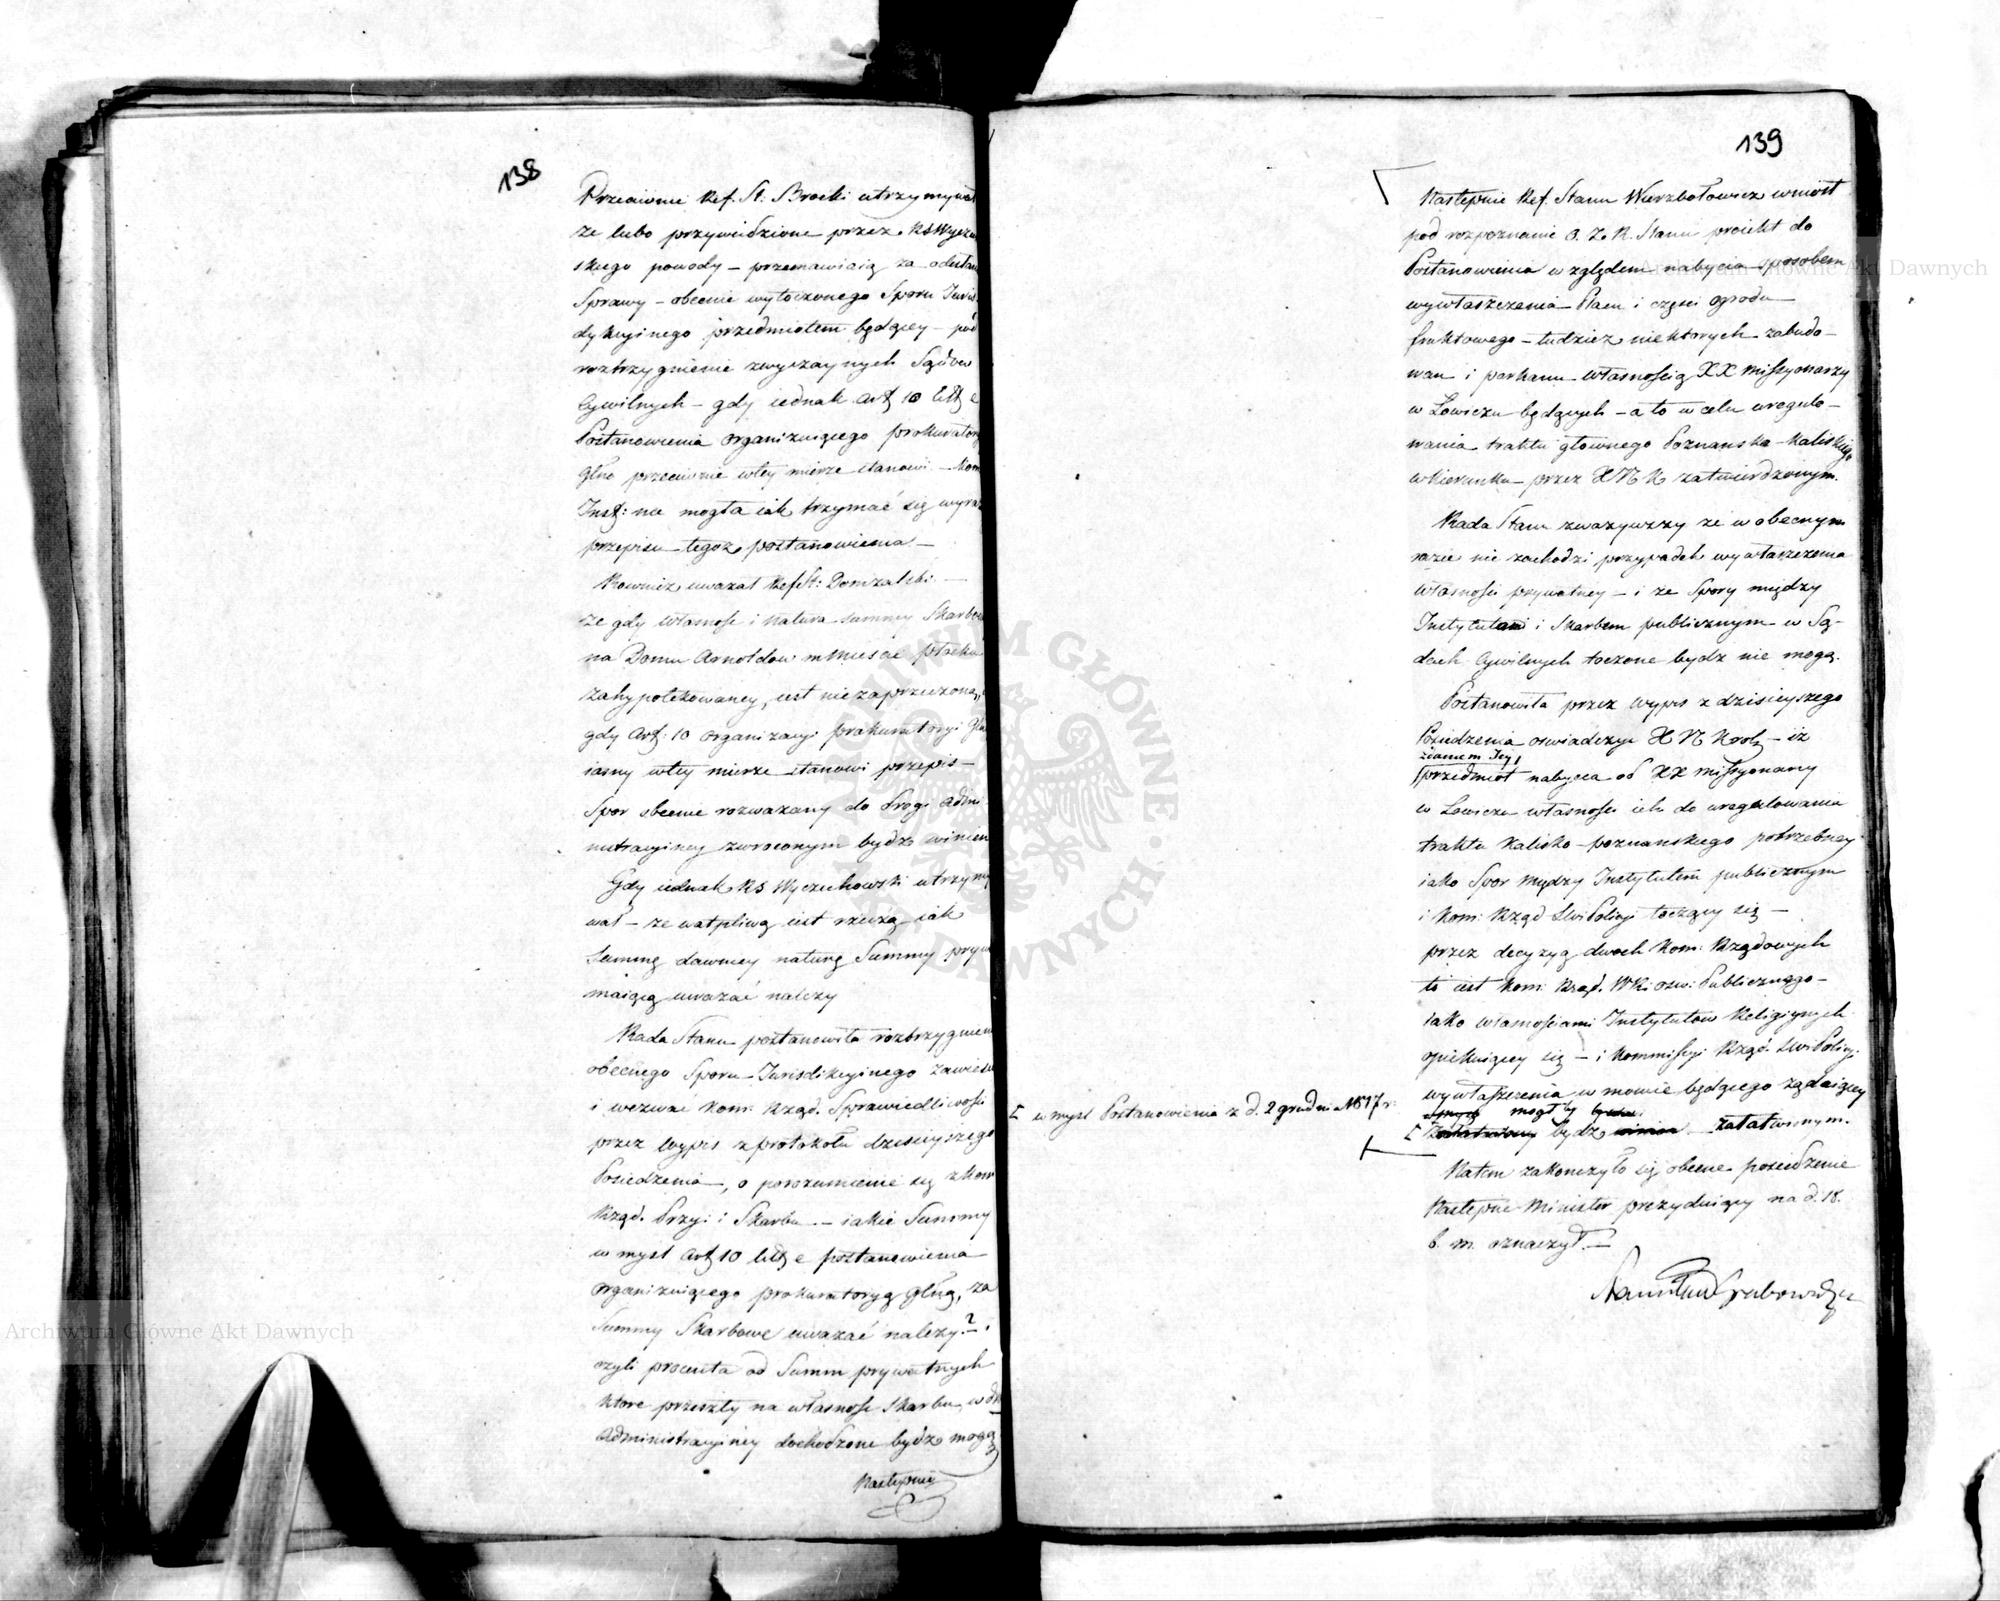 138
Przeciwnie Ref. St. Brocki utrzymywał
że lubo przywiedzione przez RS Wyczu
skiego powody – przemawiaią za odesłan
Sprawy – obecnie wytoczonego Sporu Juris
dykcyinego przedmiotem będącey – pod
roztrzygnienie zwyczaynych Sądów
Cywilnych – gdy iednak Art 10 litt e
Postanowienia organizuiącego prokuratory
Głno przeciwnie w tey mierze stanowi – Kom
Inst: nie mogła iak trzymać się wyraz
przepisu tegoż postanowienia –
Rownież uważał Ref St: Domzalski –
że gdy własność i natura summy Skarbow
na Domu Arnoldow w Mieście Płocku
zahypotekowaney, iest niezaprzeczona,
gdy Art: 10 organizacyi prokuratoryi Gł
iasny w tey mierze stanowi przepis –
Spor obecnie rozważany do drogi Admi
nistracyiney zwroconym bydź winien
Gdy iednak RS Wyczechowski utrzymy
wał – że wątpliwą iest rzeczą iak
Summę dawniey naturę Summy pryw
maiącą uważać należy
Rada Stanu postanowiła roztrzygnien
obecnego Sporu Jurisdikcyinego zawiesi
i wezwać Kom: Rząd. Sprawiedliwości
przez wypis z protokołu dzisieyszego
Posiedzenia –, o porozumienie się z Kom
Rząd. Przy: i Skarbu – iakie Summy
w myśl Art 10 litt e postanowienia
organizuiącego prokuratoryą Głną, za
Summy Skarbowe uważać należy? – .
czyli procenta od Summ prywatnych
które przeszły na własność Skarbu, w dr
Administracyiney dochodzone bydź mogą
Następnie
139
Następnie Ref. Stanu Wierzbołowicz wniosł
pod rozpoznanie O. Z. R. Stanu proiekt do
Postanowienia względem nabycia sposobem
wywłaszczenia Placu i części ogrodu
fruktowego – tudzież niektorych zabudo-
wan i parkanu własnością XX Missyonarzy
w Łowiczu będących – a to w celu uregulo-
wania traktu głownego Poznansko-Kaliskiego
w kierunku przez XNK zatwierdzonym.
Rada Stanu zważywszy że w obecnym
razie nie zachodzi przypadek wywłaszczenia
własności prywatney – i że Spory między
Instytutami i Skarbem publicznym w Są-
dach Cywilnych toczone bydź nie mogą.
Postanowiła przez wypis z dzisieyszego
Posiedzenia oswiadczyć XN Krolᷓ – iż
zdaniem Jey,
przedmiot nabycia od XX Missyonarzy
w Łowiczu własności ich do uregulowania
traktu Kalisko-poznanskiego potrzebney
iako Spor między Instytutem publicznym
i Kom: Rząd SWi Policyi toczący się –
przez decyzyą dwoch Kom: Rządowych
to iest Kom: Rząd. WR i Ośw: Publicznego –
iako własnościami Instytutow Religiynych
opiekuiącey się – i Kommissyi Rząd. SWi Policyi.
wywłaszczenia w mowie będącego żądaiącey
[ w mysl Postanowienia z d. 2 grudnia 1817 r.
mogł by
[ bydź załatwionym.
Natem zakonczyło się obecne posiedzenie
Następne Minister prezyduiący na d. 18.
b. m. oznaczył. –
Stanisław Grabowski
Archiwum Główne Akt Dawnych
Archiwum Główne Akt Dawnych
ARCHIWUM GŁÓWNE AKT DAWNYCH